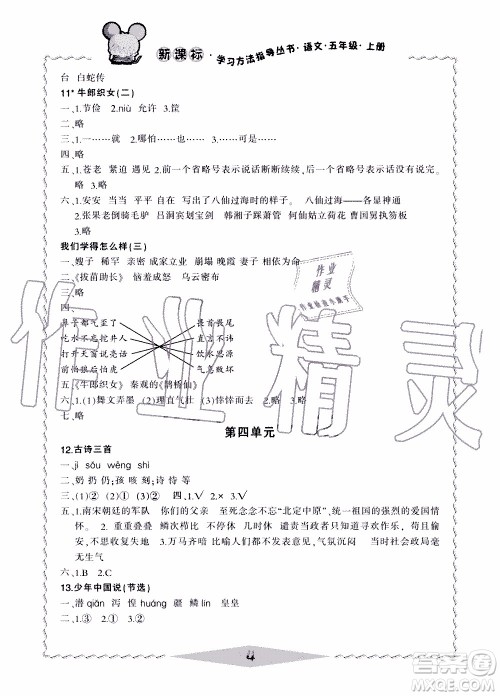 新课标·学习方法指导丛书·语文·五年级·上册
台 白蛇传
11* 牛郎织女(二)
一、1.节俭 2.niù 允许 3.筐
二、略
三、1.……就 2.哪怕……也…… 3.……可是……
四、略
五、1.苍老 紧迫 遇见 2.前一个省略号表示说话断断续续,后一个省略号表示话没有说完。
3.略 4.略
六、1.安安 当当 平平 自在 写出了八仙过海时的样子。 八仙过海——各显神通
2.张果老倒骑毛驴 吕洞宾剑 韩湘子踩萧管 何仙姑立荷花 曹国舅执笏板
3.略
我们学得怎么样(三)
一、嫂子 稀罕 亲密 成家立业 崩塌 晚霞 妻子 相依为命
二、《拔苗助长》 恼羞成怒 乌云密布
三、略
四、
鼻子都气歪了 畏首畏尾
吃水不忘挖井人 直言不讳
打开天窗说亮话 饮水思源
前怕狼后怕虎 气急败坏
五、《牛郎织女》 秦观的《鹊桥仙》
六、1.(1)舞文弄墨 (2)理直气壮 (3)悻悻而出
七、略
第四单元
12.古诗三首
一、jì sǒu wēng shī
二、奶 扔 仍; 孩 咳 刻; 诗 恃 等
三、(1)② (2)① (3)① 四、1.√ 2.× 3.× 4.√
五、1.南宋朝廷的军队 至死念念不忘“北定中原”,收复祖国的强烈的爱国之
情。 2. 重重叠叠 鳞次栉比 不停休 谴责了他们只知道寻欢作乐、苟且偷
安、出卖国家的罪行 3.万马齐喑 比喻人们都沉默,不说话,气氛沉闷。 政治
生气
六、1.B 2.C
13.少年中国说(节选)
一、潜 qián 泻 惶 huáng 疆 鳞 lín 皇皇
二、1.③ 2.① 3.① 4.①
4
作业精灵
答案圈